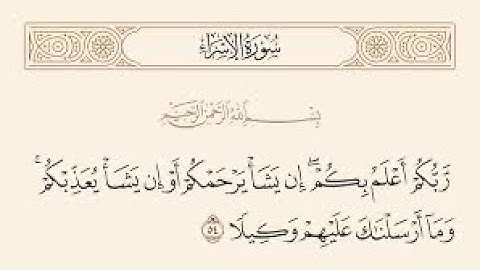 سُورَةُ الإِسۡرَاءِ
بِسۡمِ ٱللَّهِ ٱلرَّحۡمَٰنِ ٱلرَّحِيمِ
رَّبُّكُمۡ أَعۡلَمُ بِكُمۡۖ إِن يَشَأۡ يَرۡحَمۡكُمۡ أَوۡ إِن يَشَأۡ يُعَذِّبۡكُمۡۚ
وَمَآ أَرۡسَلۡنَٰكَ عَلَيۡهِمۡ وَكِيلٗا ٥٤